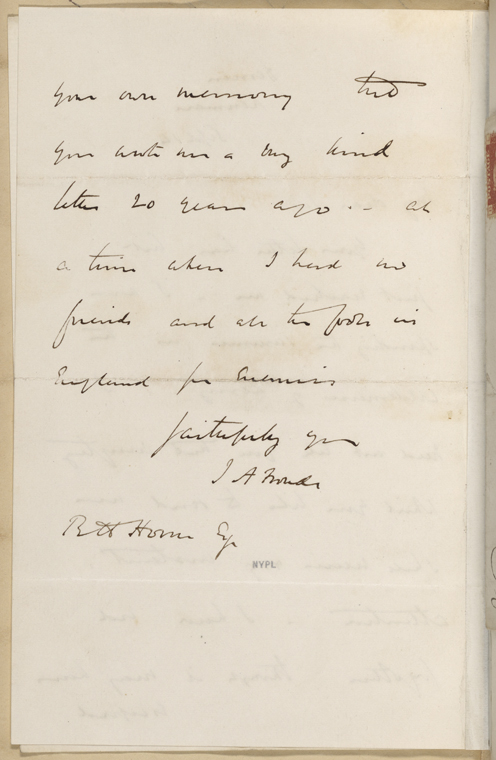 your own memory that
you wrote me a very kind
letter 20 years ago -- at
a time when I had no
friends and all the fools in
England for Enemies
faithfully yrs
J A Froude
R H Horne Esq
NYPL